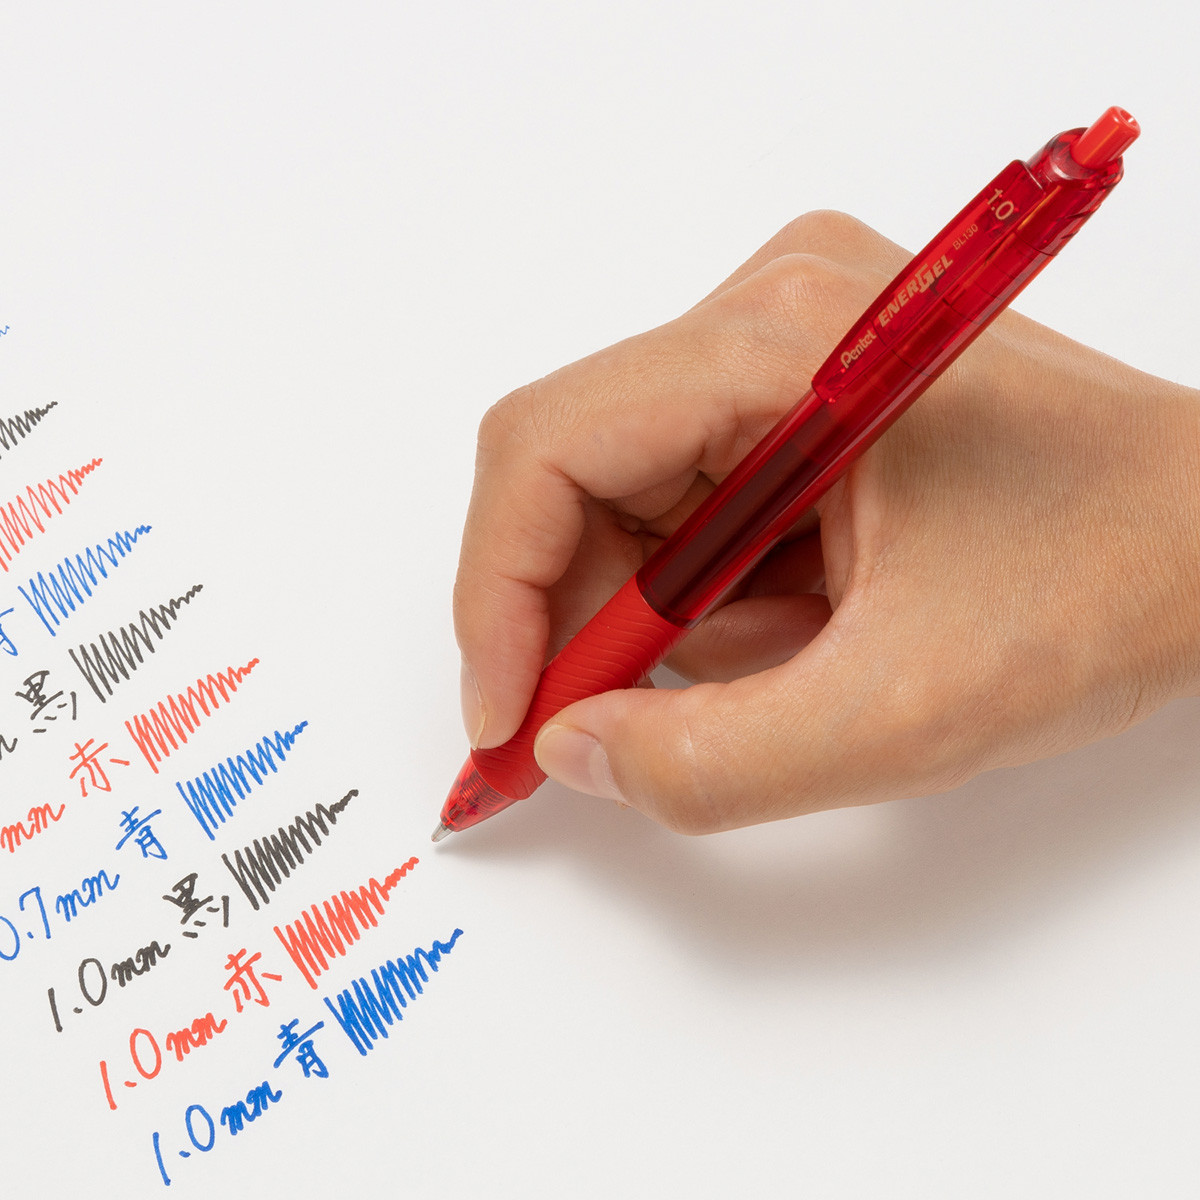 青
黒
mm 赤
0.7mm 青
1.0mm 黒
1.0mm 赤
1.0mm 青
Pentel ENERGEL BL130 1.0